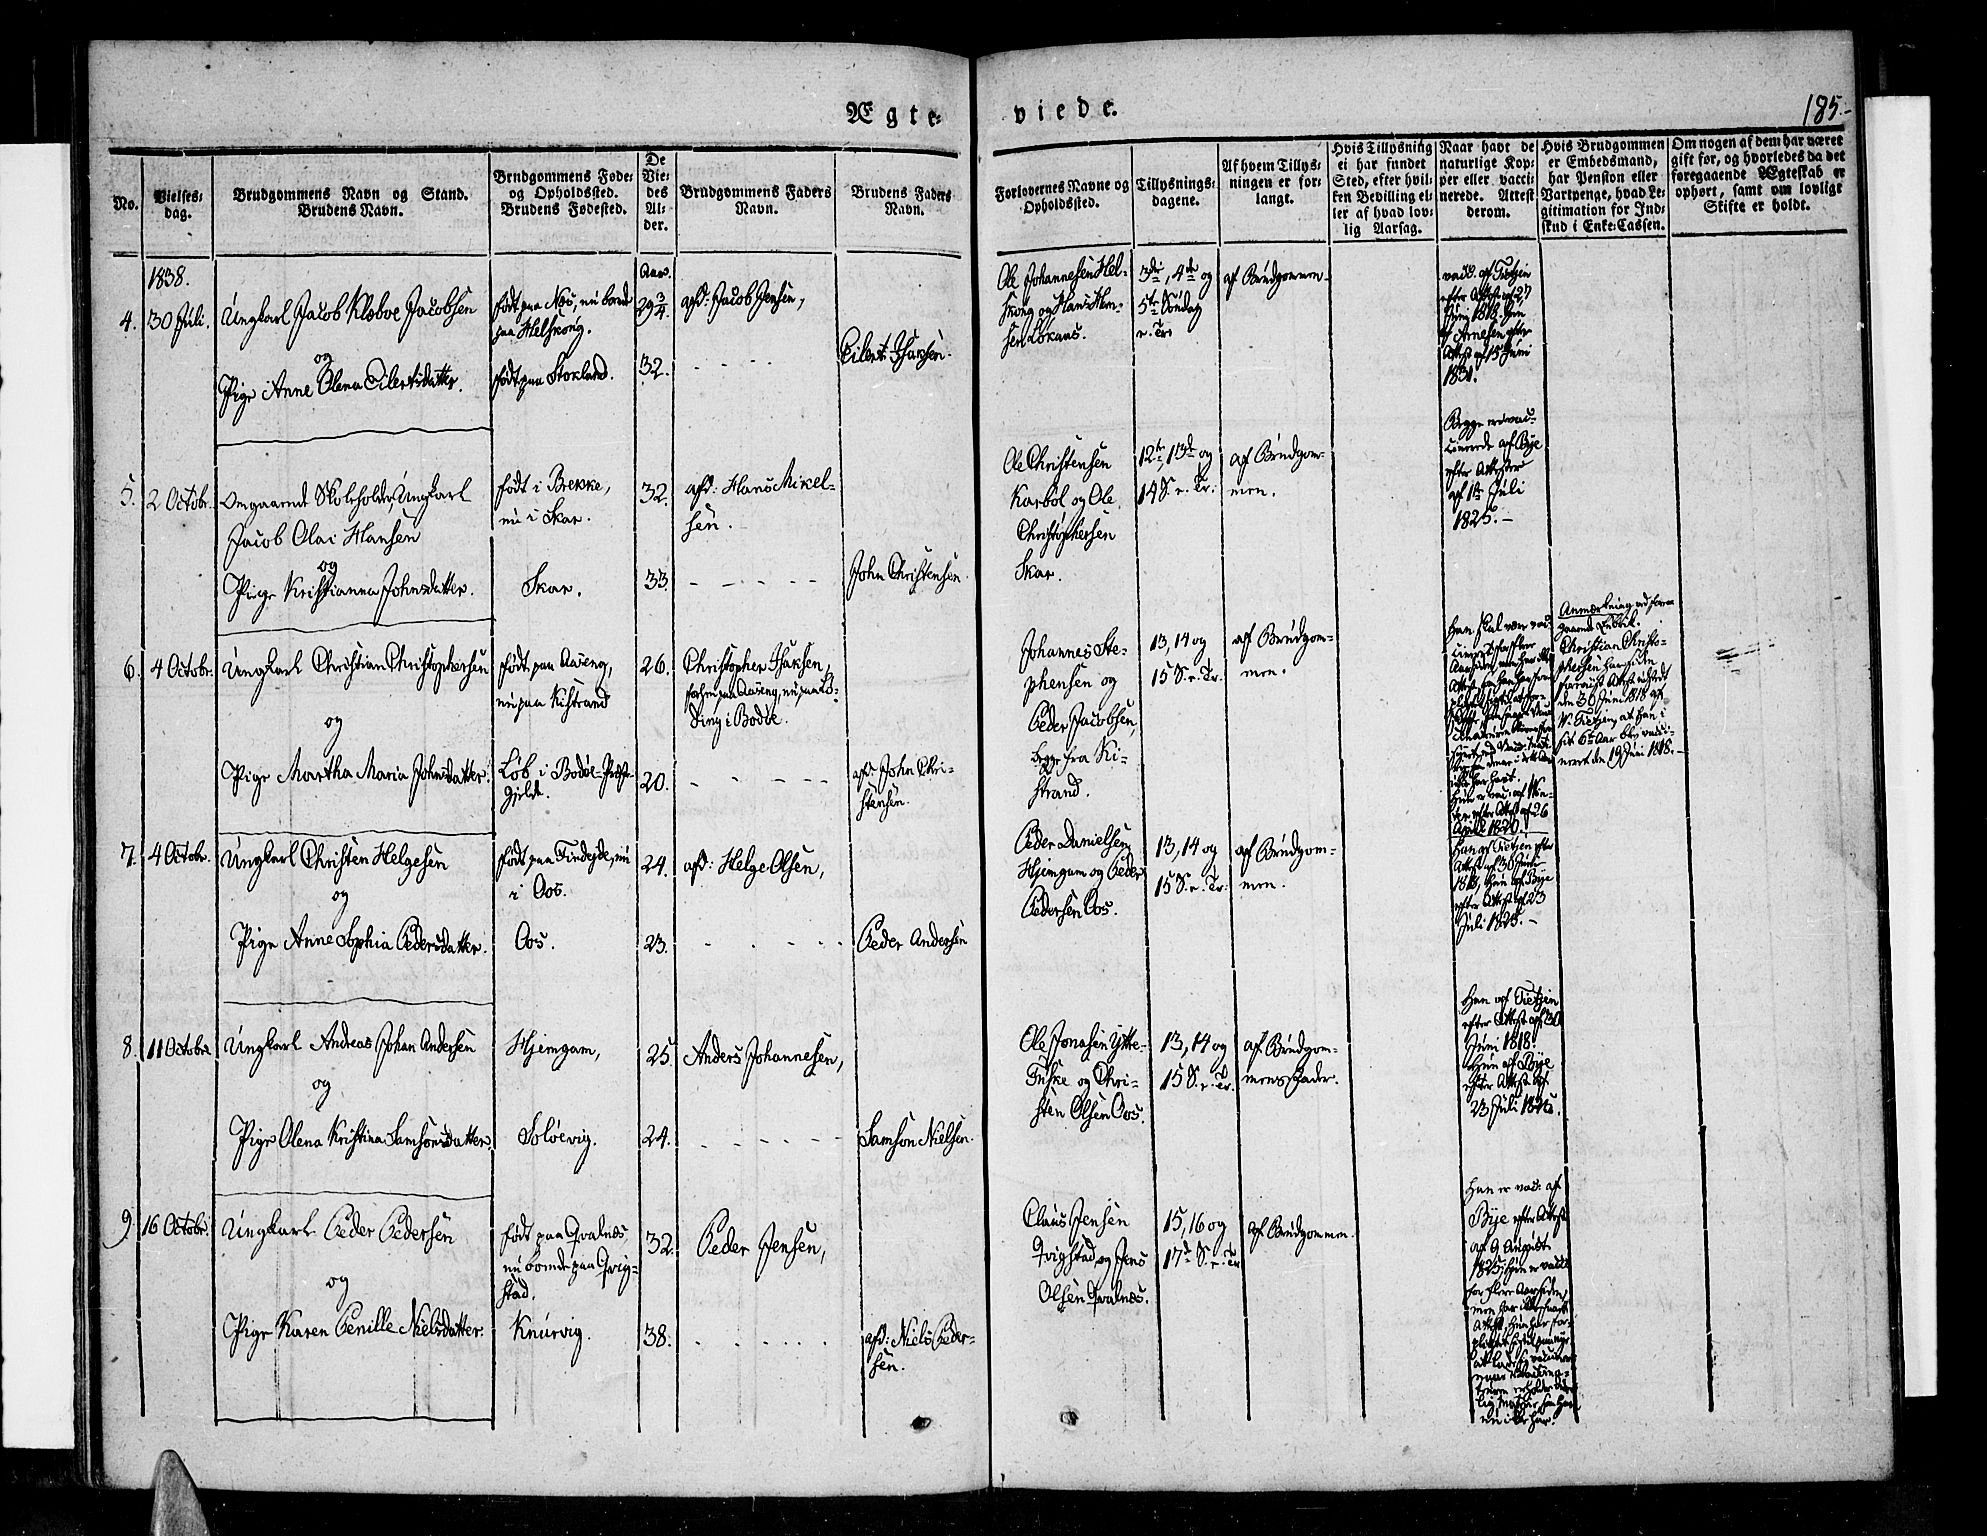 Ægte-
viede.
185.
No.
Vielses-
dag.
Brudgommens Navn og Stand.
Brudens Navn.
Brudgommens Føde-
og Opholdssted.
Brudens Fødested.
De
Vie-
des
Al-
der.
Brudgommens Faders
Navn.
Brudens Faders
Navn.
Forlovernes Navne og
Opholdssted.
Tillysnings-
dagene.
Af hvem Tillys-
ningen er for-
langt.
Hvis Tillysning
ei har fundet
Sted, efter hvil-
ken Bevilling el-
ler af hvad lov-
lig Aarsag.
Naar havt de
naturlige Kop-
per eller vacci-
nerede. Attest
derom.
Hvis Brudgommen
er Embedsmand,
har Pension eller
Vartpenge, hvad Le-
gitimation for Ind-
skud i Enke-Cassen.
Om nogen af dem har været
gift før, og hvorledes da det
foregaaende Ægteskab er
ophørt, samt om lovligt
Skifte er holdt.
1838.
4.
30 Juli.
Ungkarl Jacob Klæboe Jacobsen
og
Pige Anne Olena Eilertsdatter.
født paa Næs, nu boende
paa Helskong.
født paa Storland.
Aar.
29 3/4
32.
afd: Jacob Jensen,
Eilert Isaksen.
Ole Johannesen Hel-
skong og Hans Han-
sen Løkaas.
3die, 4de og
5te Søndag
e. Tr.
af Brudgommen
vacc. af Tietzen
efter Attest af 27
Juni 1818. Hun
af Arnesen efter
Attest af 15 Juni
1831.
5.
2 Octobr.
Omgaaende Skoleholder, Ungkarl
Jacob Olai Hansen
og
Pige Kristianna Johnsdatter.
født i Brekke,
nu i Skar.
Skar.
32.
33.
afd: Hans Mikel-
sen.
John Christensen.
Ole Christensen
Karbøl og Ole
Christophersen
Skar.
12te, 13de og
14 S. e. Tr.
af Brudgom-
men.
Begge ere vac-
cinerede af Bye
efter Attester
af 1te Juli
1825.
6.
4 Octobr.
Ungkarl Christian Christophersen
og
Pige Martha Maria Johnsdatter.
født paa Aaseng,
nu paa Kistrand
Løb i Bodøe-Præste-
gjeld.
26.
20.
Christopher Isaksen,
forhen paa Aaseng, nu paa Lø-
ding i Bodøe.
afd: John Chri-
stensen.
Johannes Ste-
phensen og
Peder Jacobsen,
begge fra Ki-
strand.
13, 14 og
15 S. e. Tr.
af Brudgom-
men.
Han skal være vac-
Hun er vac: af Win-
ter efter Attest af 26
April 1820.
Anmærkning ved foran
gaaende Rubrik.
Christian Christo-
phersen har siden
foreviist Attest udstedt
den 30 Juni 1818 af
W. Tietzen, at han i
sit 6te Aar blev vacci-
neret den 19 Juni 1818.
7.
4 Octobr.
Ungkarl Christen Helgesen
og
Pige Anne Sophia Pedersdatter.
født paa Findejde, nu
i Oos.
Oos.
24.
23.
afd: Helge Olsen,
Peder Andersen
Peder Danielsen
Hjemgam og Peder
Pedersen Oos.
13, 14 og
15 S. e. Tr.
af Brudgom-
men.
Han af Tietzen efter
Attest af 30 Juni
1818, Hun af Bye
efter Attest af 23
Juli 1825.
8.
11 Octobr.
Ungkarl Andreas Johan Andersen
og
Pige Olena Kristina Samsonsdatter.
Hjemgam,
Soløevig.
25.
24.
Anders Johannesen,
Samson Nielsen.
Ole Jonasen Ytte-
Tuske og Chri-
sten Olsen Oos.
13, 14 og
15 S. e. Tr.
af Brudgom-
mens Fader.
Han af Tietzen
efter Attest af 30
Juni 1818.
Hun af Bye
efter Attest af
23 Juli 1825.
9.
16 Octobr.
Ungkarl Peder Pedersen
og
Pige Karen Penille Nielsdatter.
født paa Qvalnes,
nu boende paa Qvig-
stad.
Knurvig.
32.
38.
Peder Jensen,
afd: Niels Peder-
sen.
Claus Jensen
Qvigstad og Jens
Olsen Qvalnes.
15, 16 og
17de S. e. Tr.
af Brudgommen.
Han er vac: af
Bye efter Attest
af 9 August
1825; Hun er vacc:
for flere Aar siden,
men har ikke faaet
Attest,